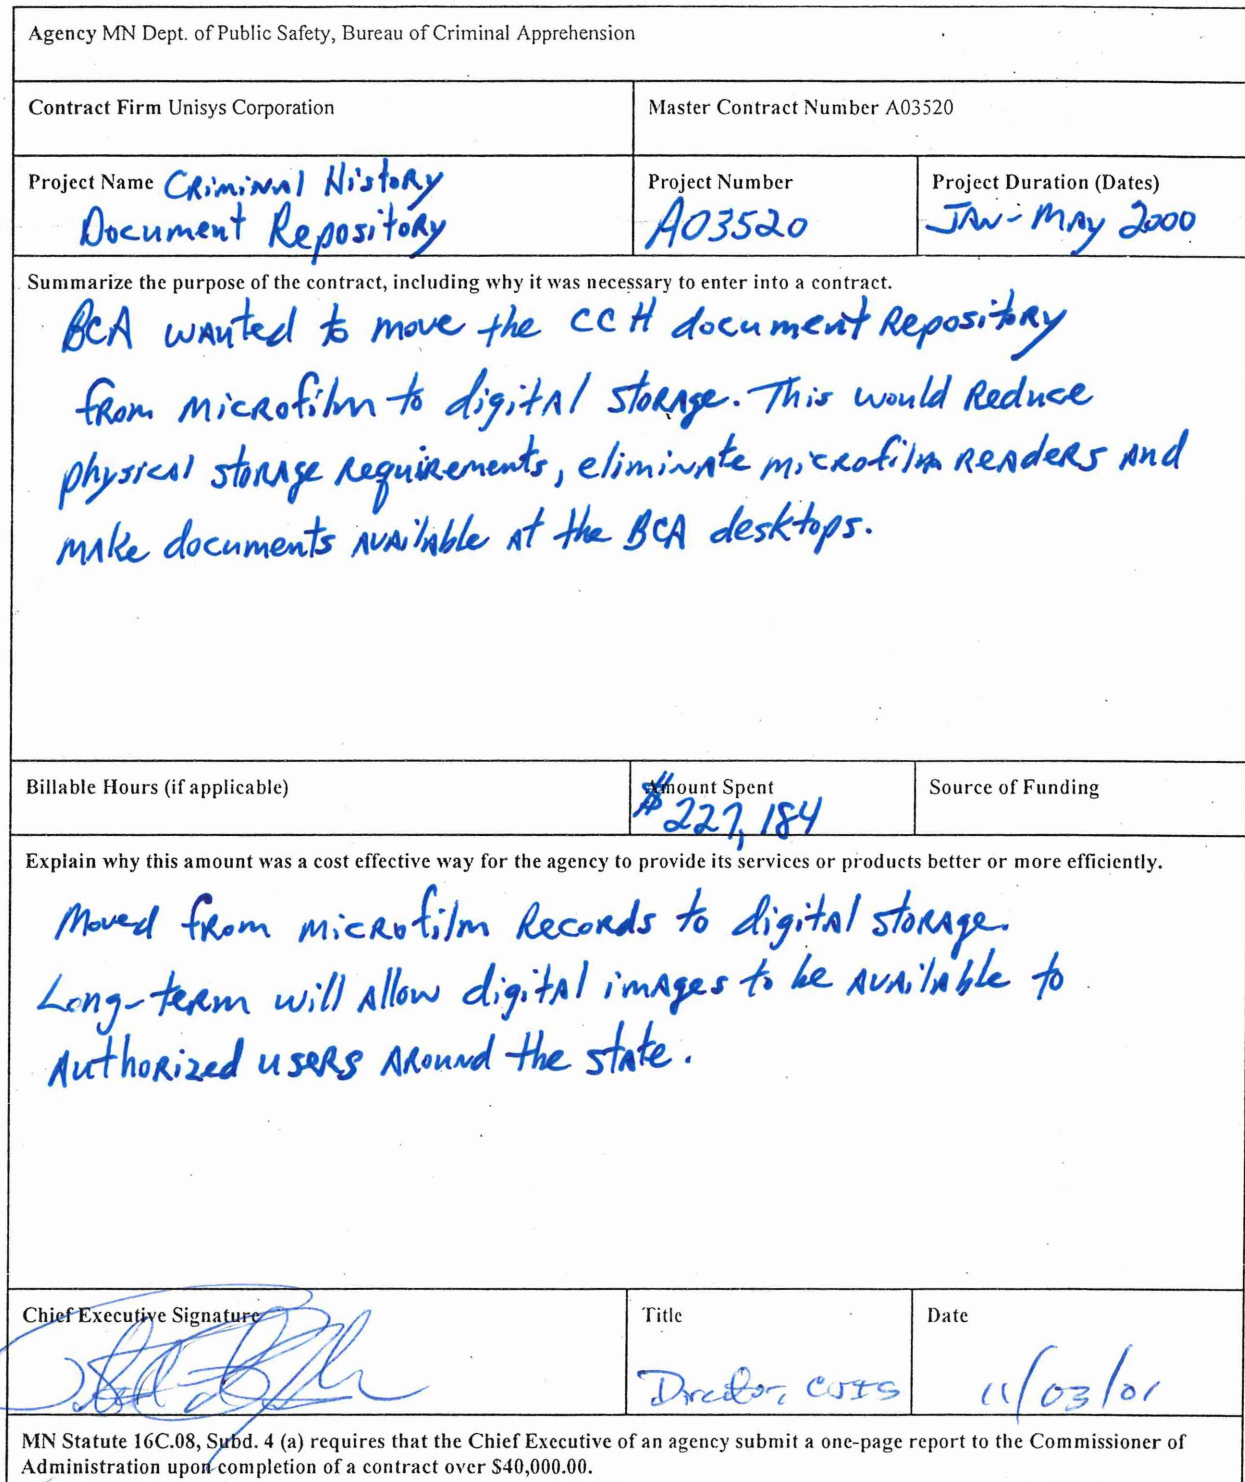 Agency MN Dept. of Public Safety, Bureau of Criminal Apprehension
Contract Firm Unisys Corporation
Master Contract Number A03520
Project Name Criminal History
Document Repository
Project Number
A03520
Project Duration (Dates)
JAN - MAY 2000
Summarize the purpose of the contract, including why it was necessary to enter into a contract.
BCA wanted to move the CCH document Repository
from microfilm to digital storage. This would Reduce
physical storage requirements, eliminate microfilm readers and
make documents available at the BCA desktops.
Billable Hours (if applicable)
Amount Spent
$227,184
Source of Funding
Explain why this amount was a cost effective way for the agency to provide its services or products better or more efficiently.
Moved from microfilm Records to digital storage.
Long-term will allow digital images to be available to
authorized users around the state.
Chief Executive Signature
Title
Director, CJIS
Date
11/03/01
MN Statute 16C.08, Subd. 4 (a) requires that the Chief Executive of an agency submit a one-page report to the Commissioner of
Administration upon completion of a contract over $40,000.00.